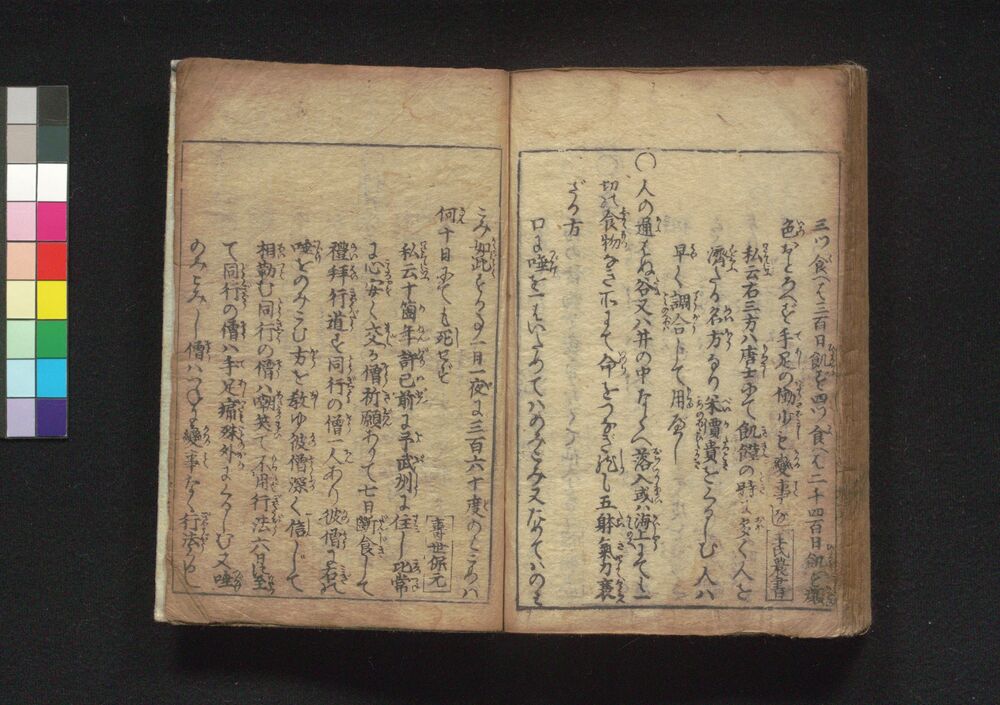 三ツ食へは三百日飢を四ツ食へは二千四百日飢を
色おとろへを手足の働少も変事なし 王氏農書
私云右三方ハ唐土にて飢饉の時にも多く人を
濟たる名方なり米價貴とくるしむ人ハ
早く調合して用へし
〇人の通はぬ谷又ハ井の中なとへ落入或ハ海上にても
切れ食物なき所にて命をつなき死し五躰氣力衰
さる方
口に唾を一もいためてハのみこみ又ためてハのみ
こみ如此をする一日一夜に三百六十度のところハ
何十日にても死せす 壽世保元
私云十箇年許已前に予武州に住し比常
に心安く交る僧祈願ありて七日断食して
禮拜行道を同行の僧一人あり彼僧に右の
唾をのみこむ方を教ゆ彼僧深く信して
相勤む同行の僧ハ嘲笑て不用行法六日に至
て同行の僧ハ手足痛殊外にくるしむ又唾
のみこみし僧ハつねに変事なく行法